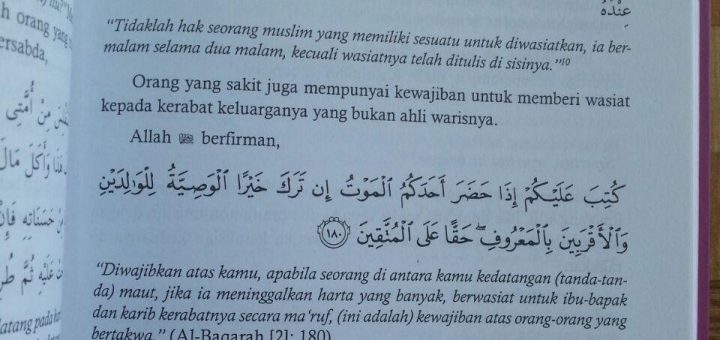 عِنْدَهُ
“Tidaklah hak seorang muslim yang memiliki sesuatu untuk diwasiatkan, ia ber-
malam selama dua malam, kecuali wasiatnya telah ditulis di sisinya.”¹⁰
Orang yang sakit juga mempunyai kewajiban untuk memberi wasiat
kepada kerabat keluarganya yang bukan ahli warisnya.
Allah ﷻ berfirman,
كُتِبَ عَلَيْكُمْ إِذَا حَضَرَ أَحَدَكُمُ ٱلْمَوْتُ إِن تَرَكَ خَيْرًا ٱلْوَصِيَّةُ لِلْوَٰلِدَيْنِ
وَٱلْأَقْرَبِينَ بِٱلْمَعْرُوفِ ۖ حَقًّا عَلَى ٱلْمُتَّقِينَ ١٨٠
“Diwajibkan atas kamu, apabila seorang di antara kamu kedatangan (tanda-tan-
da) maut, jika ia meninggalkan harta yang banyak, berwasiat untuk ibu-bapak
dan karib kerabatnya secara ma'ruf, (ini adalah) kewajiban atas orang-orang yang
bertakwa.” (Al-Baqarah [2]: 180)
orang yang
ersabda,
مِنْ أُمَّتِى
وَأَكَلَ مَالَ
حَسَنَاتِهِ فَإِنْ
عَلَيْهِ ثُمَّ
atang pada